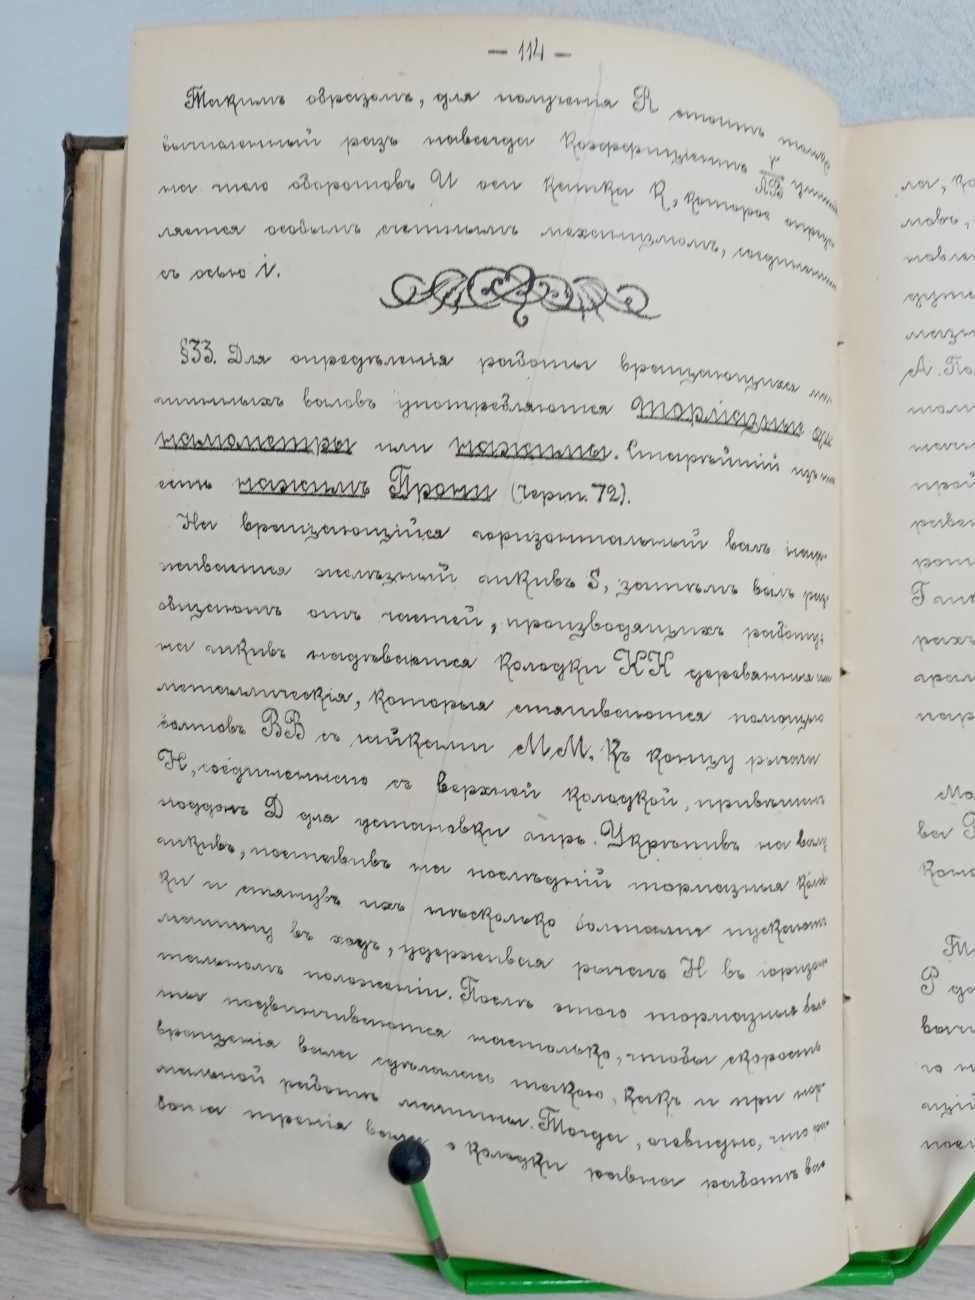 — 114 —
Такимъ образомъ, для полученія R стоитъ только
вычисленный разъ навсегда коэффиціентъ
на число оборотовъ U оси катка R, которое опредѣ-
ляется особымъ счетнымъ механизмомъ, соединеннымъ
съ осью i.
§33. Для опредѣленія работы вращающихся ма-
шинныхъ валовъ употребляются тормазные ди-
намометры или нажимы. Старѣйшій изъ нихъ
есть нажимъ Прони (Черт. 72).
На вращающійся горизонтальный валъ наса-
живается желѣзный шкивъ S, затѣмъ валъ раз-
общаютъ отъ частей, производящихъ работу;
на шкивъ надѣваются колодки KK деревянныя или
металлическія, которыя стягиваются помощью
болтовъ BB съ гайками MM. Къ концу рычага
H, соединеннаго съ верхней колодкой, привѣшенъ
поддонъ D для установки гирь. Укрѣпивъ на валу
шкивъ, поставивъ на послѣдній тормазныя колод-
ки и стянувъ ихъ нѣсколько болтами пускаютъ
машину въ ходъ, удерживая рычагъ H въ горизон-
тальномъ положеніи. Послѣ этого тормазные бол-
ты подвинчиваются настолько, чтобы скорость
вращенія вала сдѣлалась такою, какъ и при нор-
мальной работѣ машины. Тогда, очевидно, что ра-
бота тренія вала о колодки равна работѣ ва-